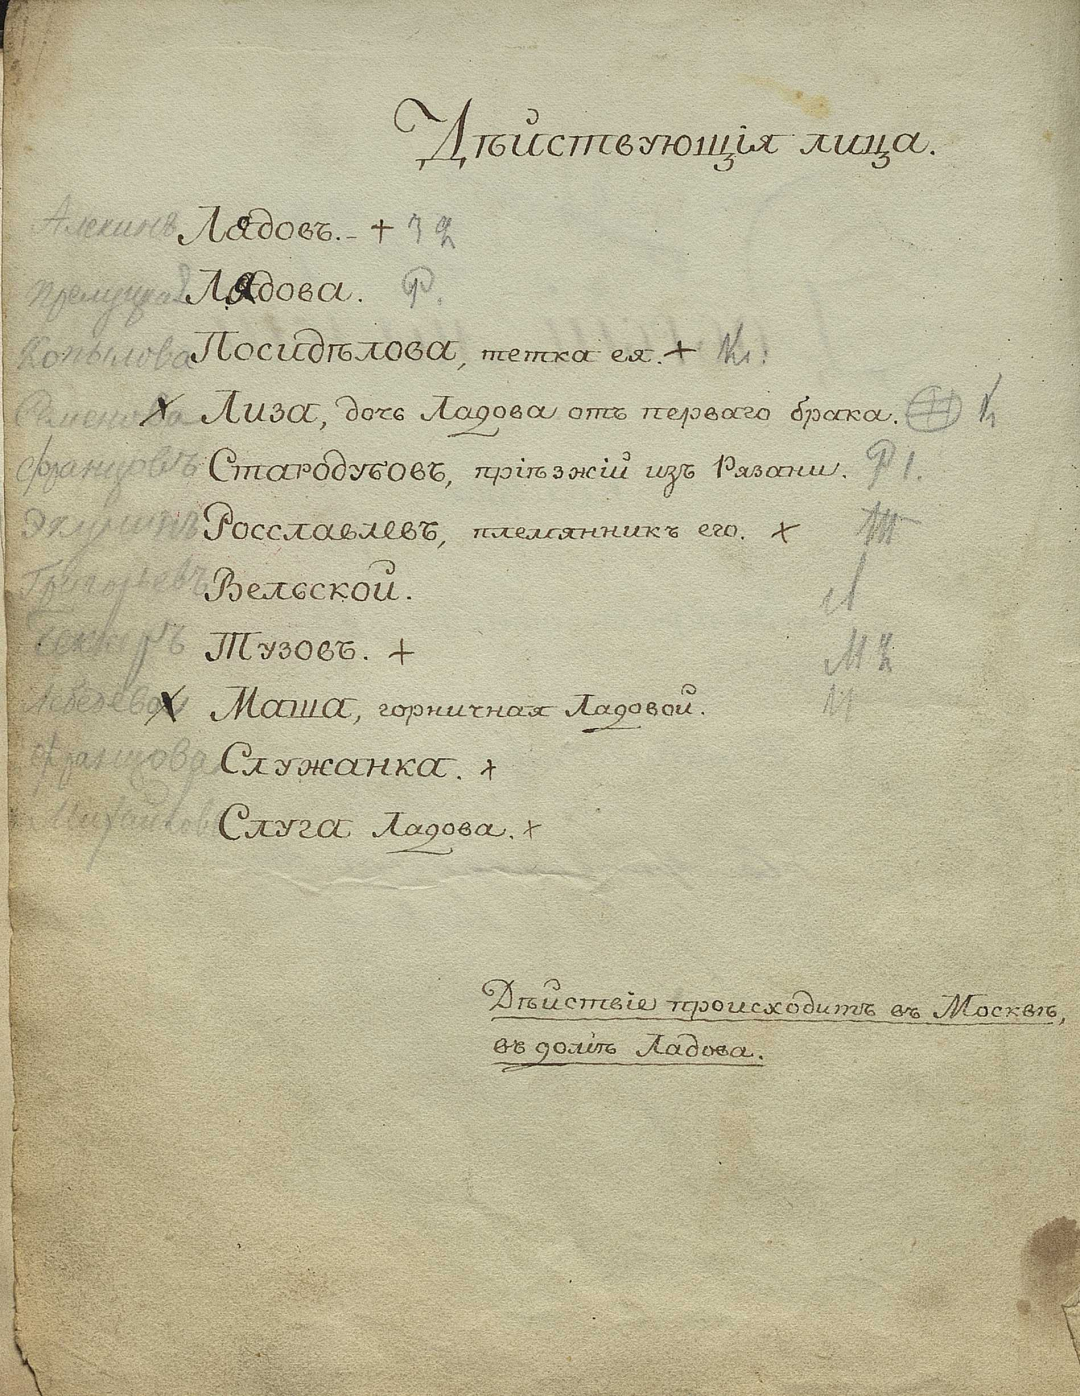 Дѣйствующія лица.
Лядовъ. - + З
Лядова. Р.
Копылова Посидѣлова, тетка ея. + Кл:
Семенова х Лиза, дочь Ладова отъ перваго брака.
Францовъ Стародубовъ, пріѣзжій изъ Рязани. Р 1.
Росславлевъ, племянникъ его. х
Григорьевъ Вельской.
Тузовъ. + М
Лебедева х Маша, горничная Ладовой. М
Францова Служанка. х
Михайловъ Слуга Ладова. х
Дѣйствіе происходитъ въ Москвѣ,
въ домѣ Ладова.